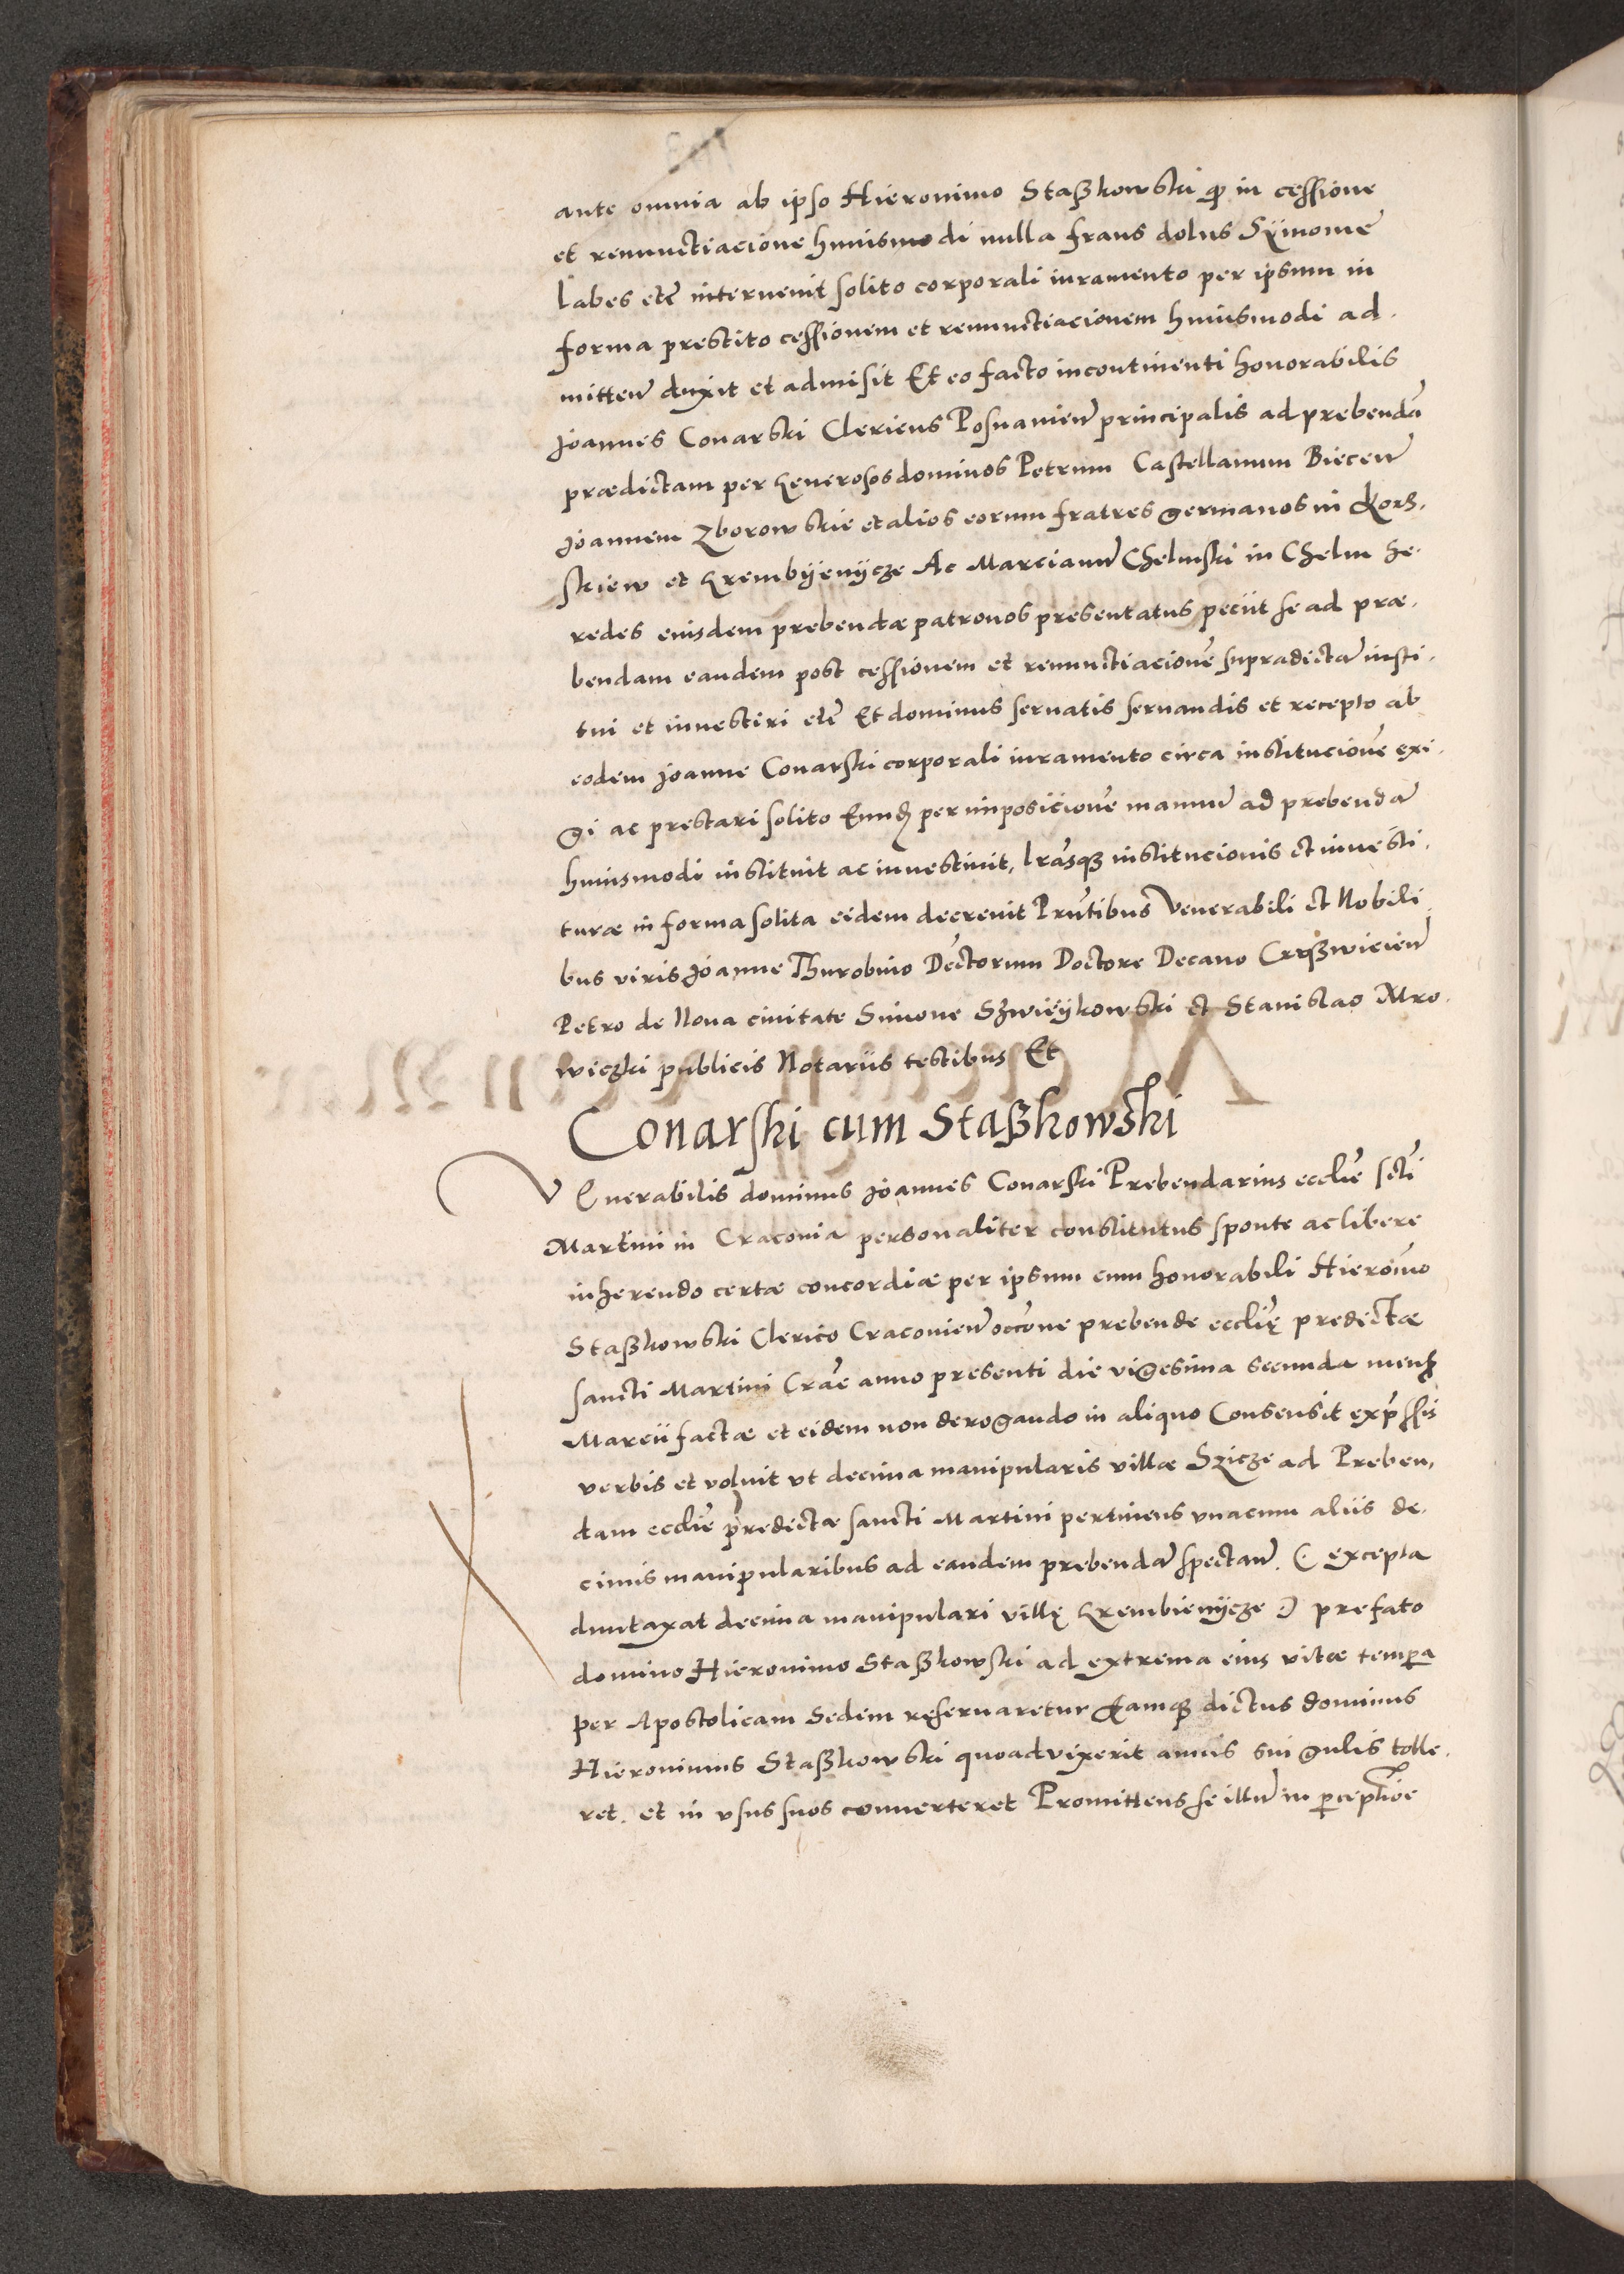 ante omnia ab ipso Hieronimo Staßkowski ꝙ in cessione
et renunctiacione huiusmodi nulla fraus dolus Symonie
labes etc̃ interuenit solito corporali iuramento per ipsum in
forma prestito cessionem et renunctiacionem huiusmodi ad-
mitteñ duxit et admisit Et eo facto incontinenti honorabilis
Joannes Conarski Clericus Posnanieñ principalis ad prebendã
prædictam per Generosos dominos Petrum Castellanum Bieceñ
Joannem Zborowskie et alios eorum fratres germanos in
skiew et Grembyenycze Ac Marcianũ Chelmski in Chelm he-
redes eiusdem prebendæ patronos presentatus peciit se ad præ-
bendam eandem post cessionem et renunctiacionẽ supradictã insti-
tui et inuestiri etc̃ Et dominus seruatis seruandis et recepto ab
eodem Joanne Conarski corporali iuramento circa institucionẽ exi-
gi ac prestari solito Eund per imposicionẽ manuũ ad prebendã
huiusmodi instituit ac inuestiuit, lr̃asq̃ institucionis et inuesti-
turæ in forma solita eidem decreuit Pñtibus Venerabili et Nobili-
bus viris Joanne Thurobino Dec̃torum Doctore Decano
Petro de Noua ciuitate Simone Szwieykowski et Stanislao Mro-
wiczki publicis Notariis testibus Et
Conarski cum Staßkowski
VEnerabilis dominus Joannes Conarski Prebendarius eccliẽ sc̃ti
Martini in Cracouia personaliter constitutus sponte ac libere
inherendo certæ concordiæ per ipsum cum honorabili Hieroĩmo
Staßkowski Clerico Cracouieñ occõne prebende eccliẽ predictæ
sancti Martini Crac̃ anno presenti die vigesima secunda mens
Marcii factæ et eidem non derogando in aliquo Consensit exp̃ssis
verbis et voluit vt decima manipularis villæ Szicze ad Preben-
dam eccliẽ predictæ sancti Martini pertinens vnacum aliis de-
cimis manipularibus ad eandem prebendã spectañ. (: excepta
duntaxat decima manipulari villę Grembienycze :) prefato
domino Hieronimo Staßkowski ad extrema eius vitæ tempora
per Apostolicam Sedem reseruaretur dictus dominus
Hieronimus Staßkowski quoad vixerit annis singulis tolle-
ret. et in vsus suos conuerteret Promittens se illũ in perceptiõe